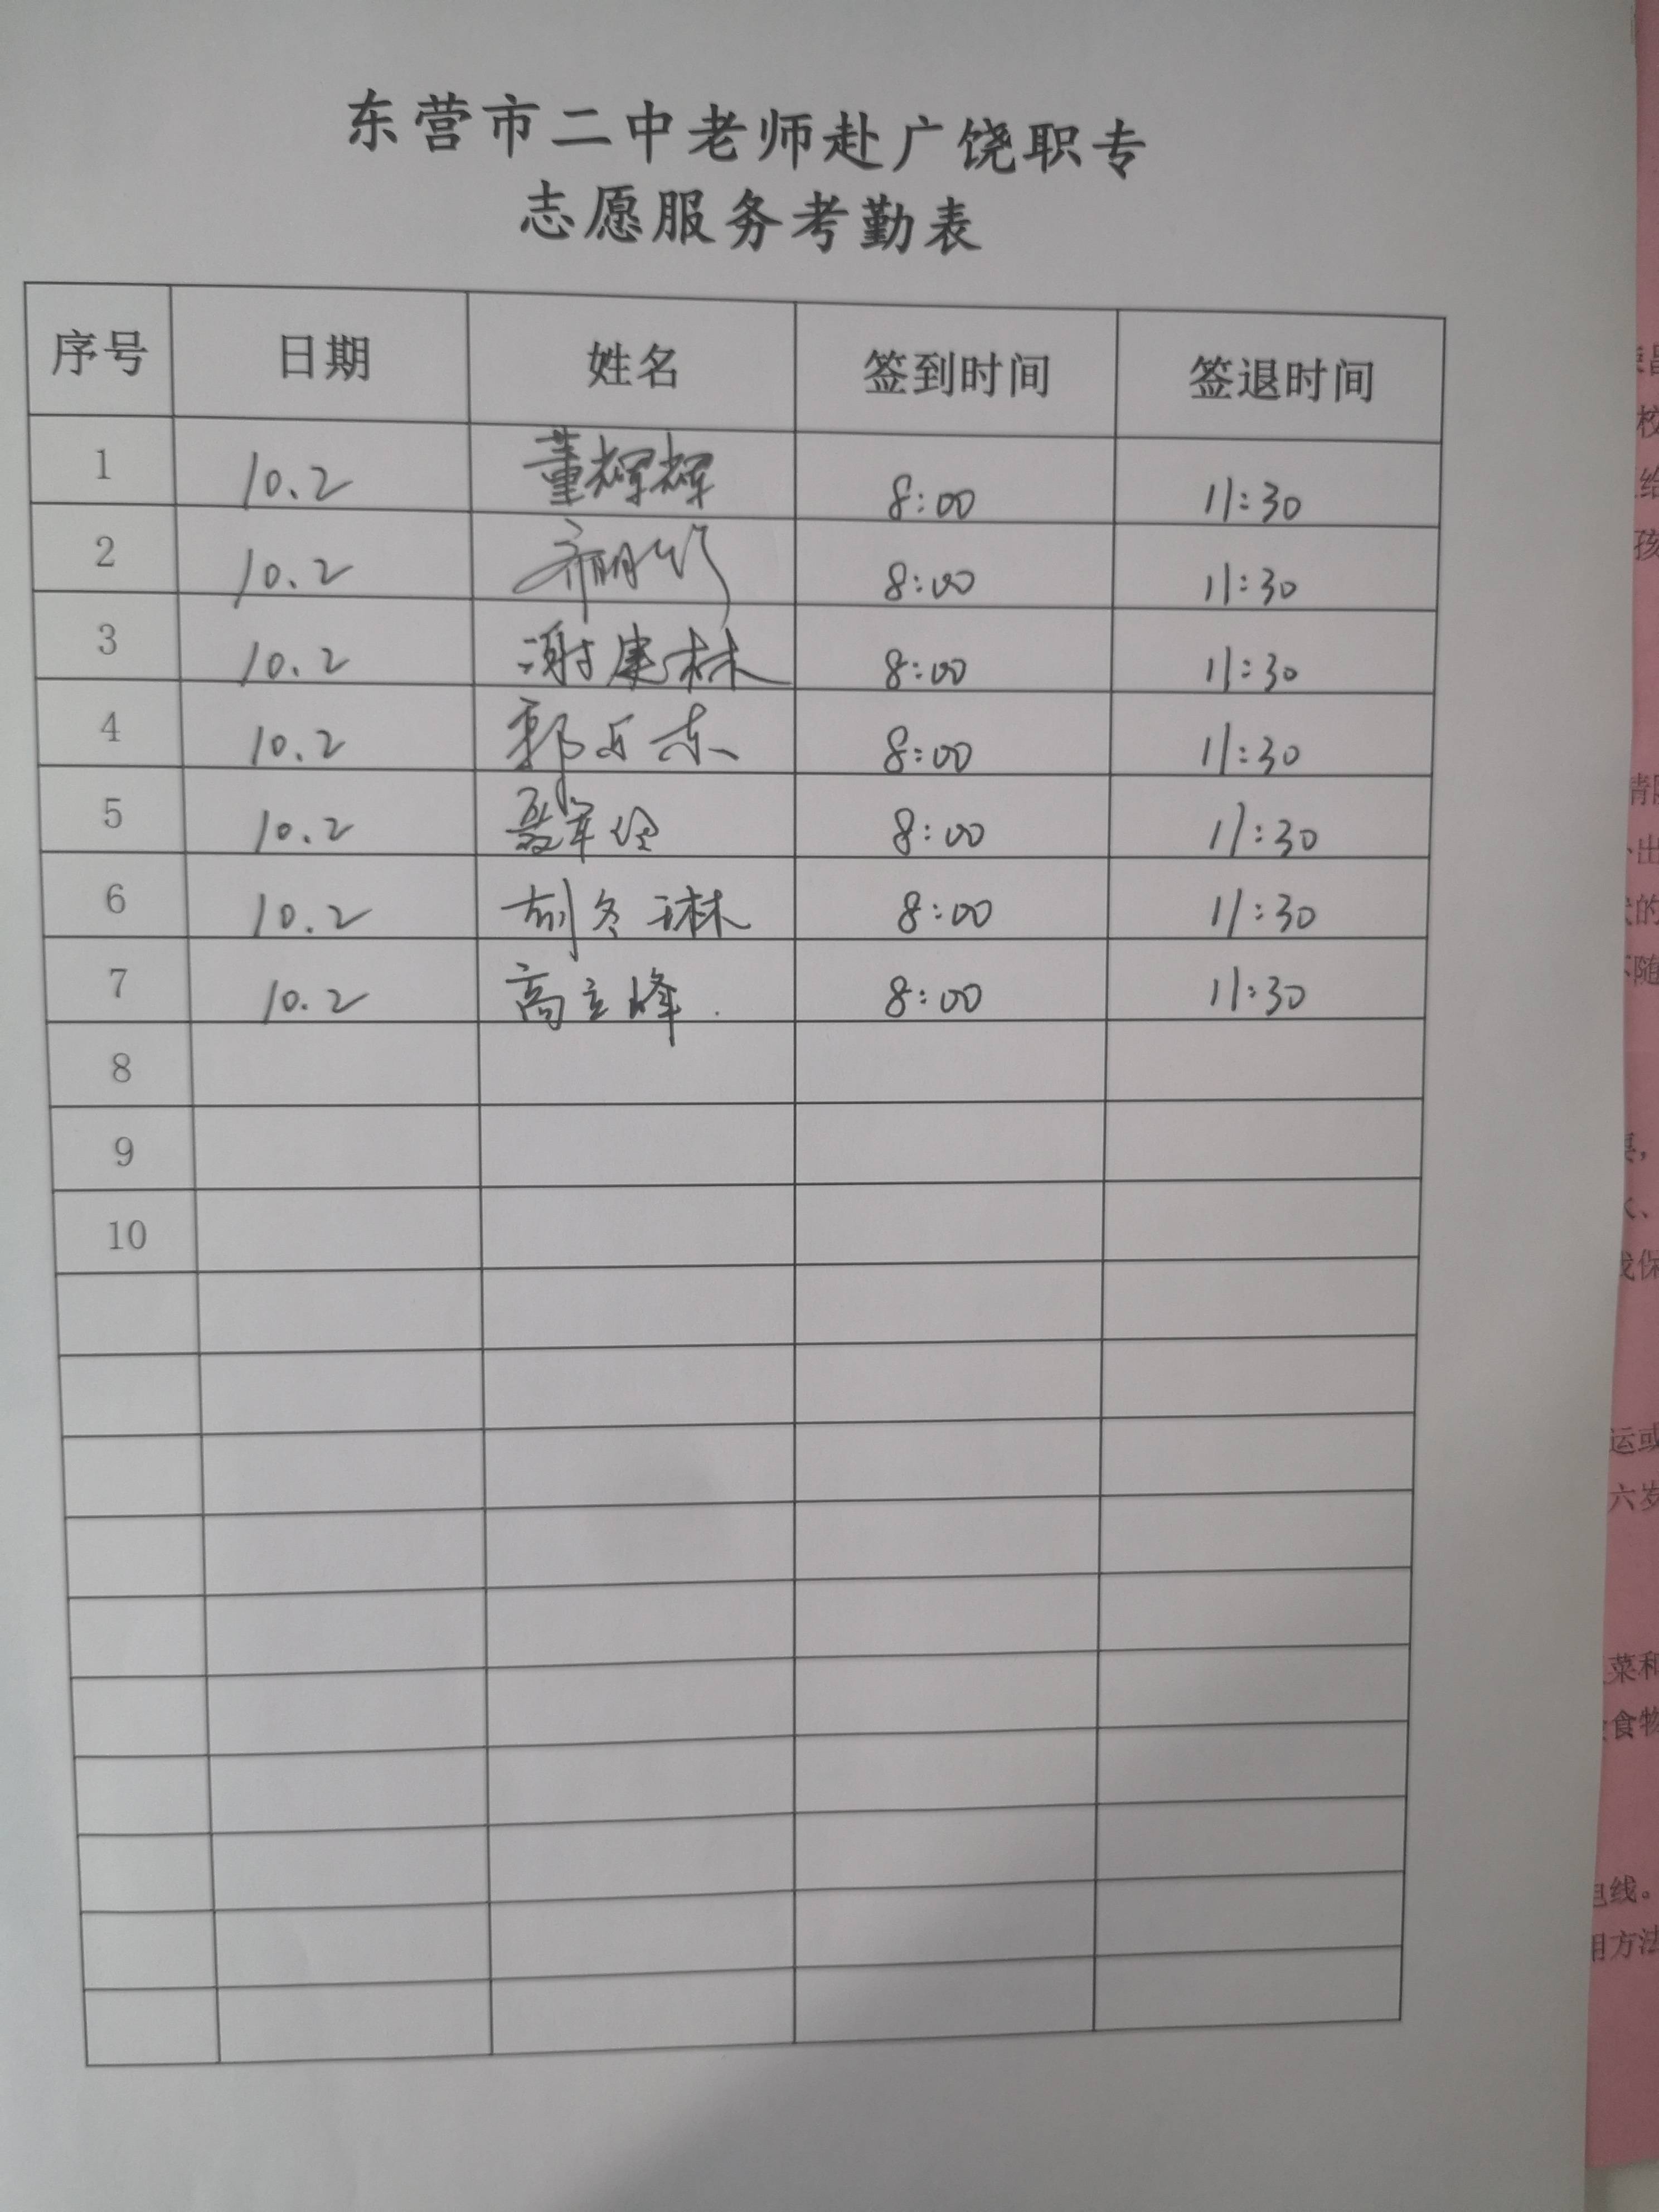 东营市二中老师赴广饶职专
志愿服务考勤表
序号 日期 姓名 签到时间 签退时间
1 10.2 董辉辉 8:00 11:30
2 10.2 8:00 11:30
3 10.2 谢康林 8:00 11:30
4 10.2 郭乐东 8:00 11:30
5 10.2 8:00 11:30
6 10.2 胡冬琳 8:00 11:30
7 10.2 高立峰 8:00 11:30
8
9
10
校
给
孩
出
的
不随
保
运或
六岁
菜和
食物
电线。
用方法